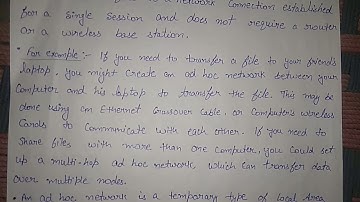 to a network connection established
for a single session and does not require a router
or a wireless base station.
• For example :- If you need to transfer a file to your friend's
laptop, you might create an ad hoc network between your
Computer and his laptop to transfer the file. This may be
done using an Ethernet Crossover Cable, or Computer's wireless
Cards to Communicate with each other. If you need to
Share files with more than one Computer, you could set
up a multi-hop ad hoc network, which can transfer data
over multiple nodes.
• An ad hoc network is a temporary type of local Area